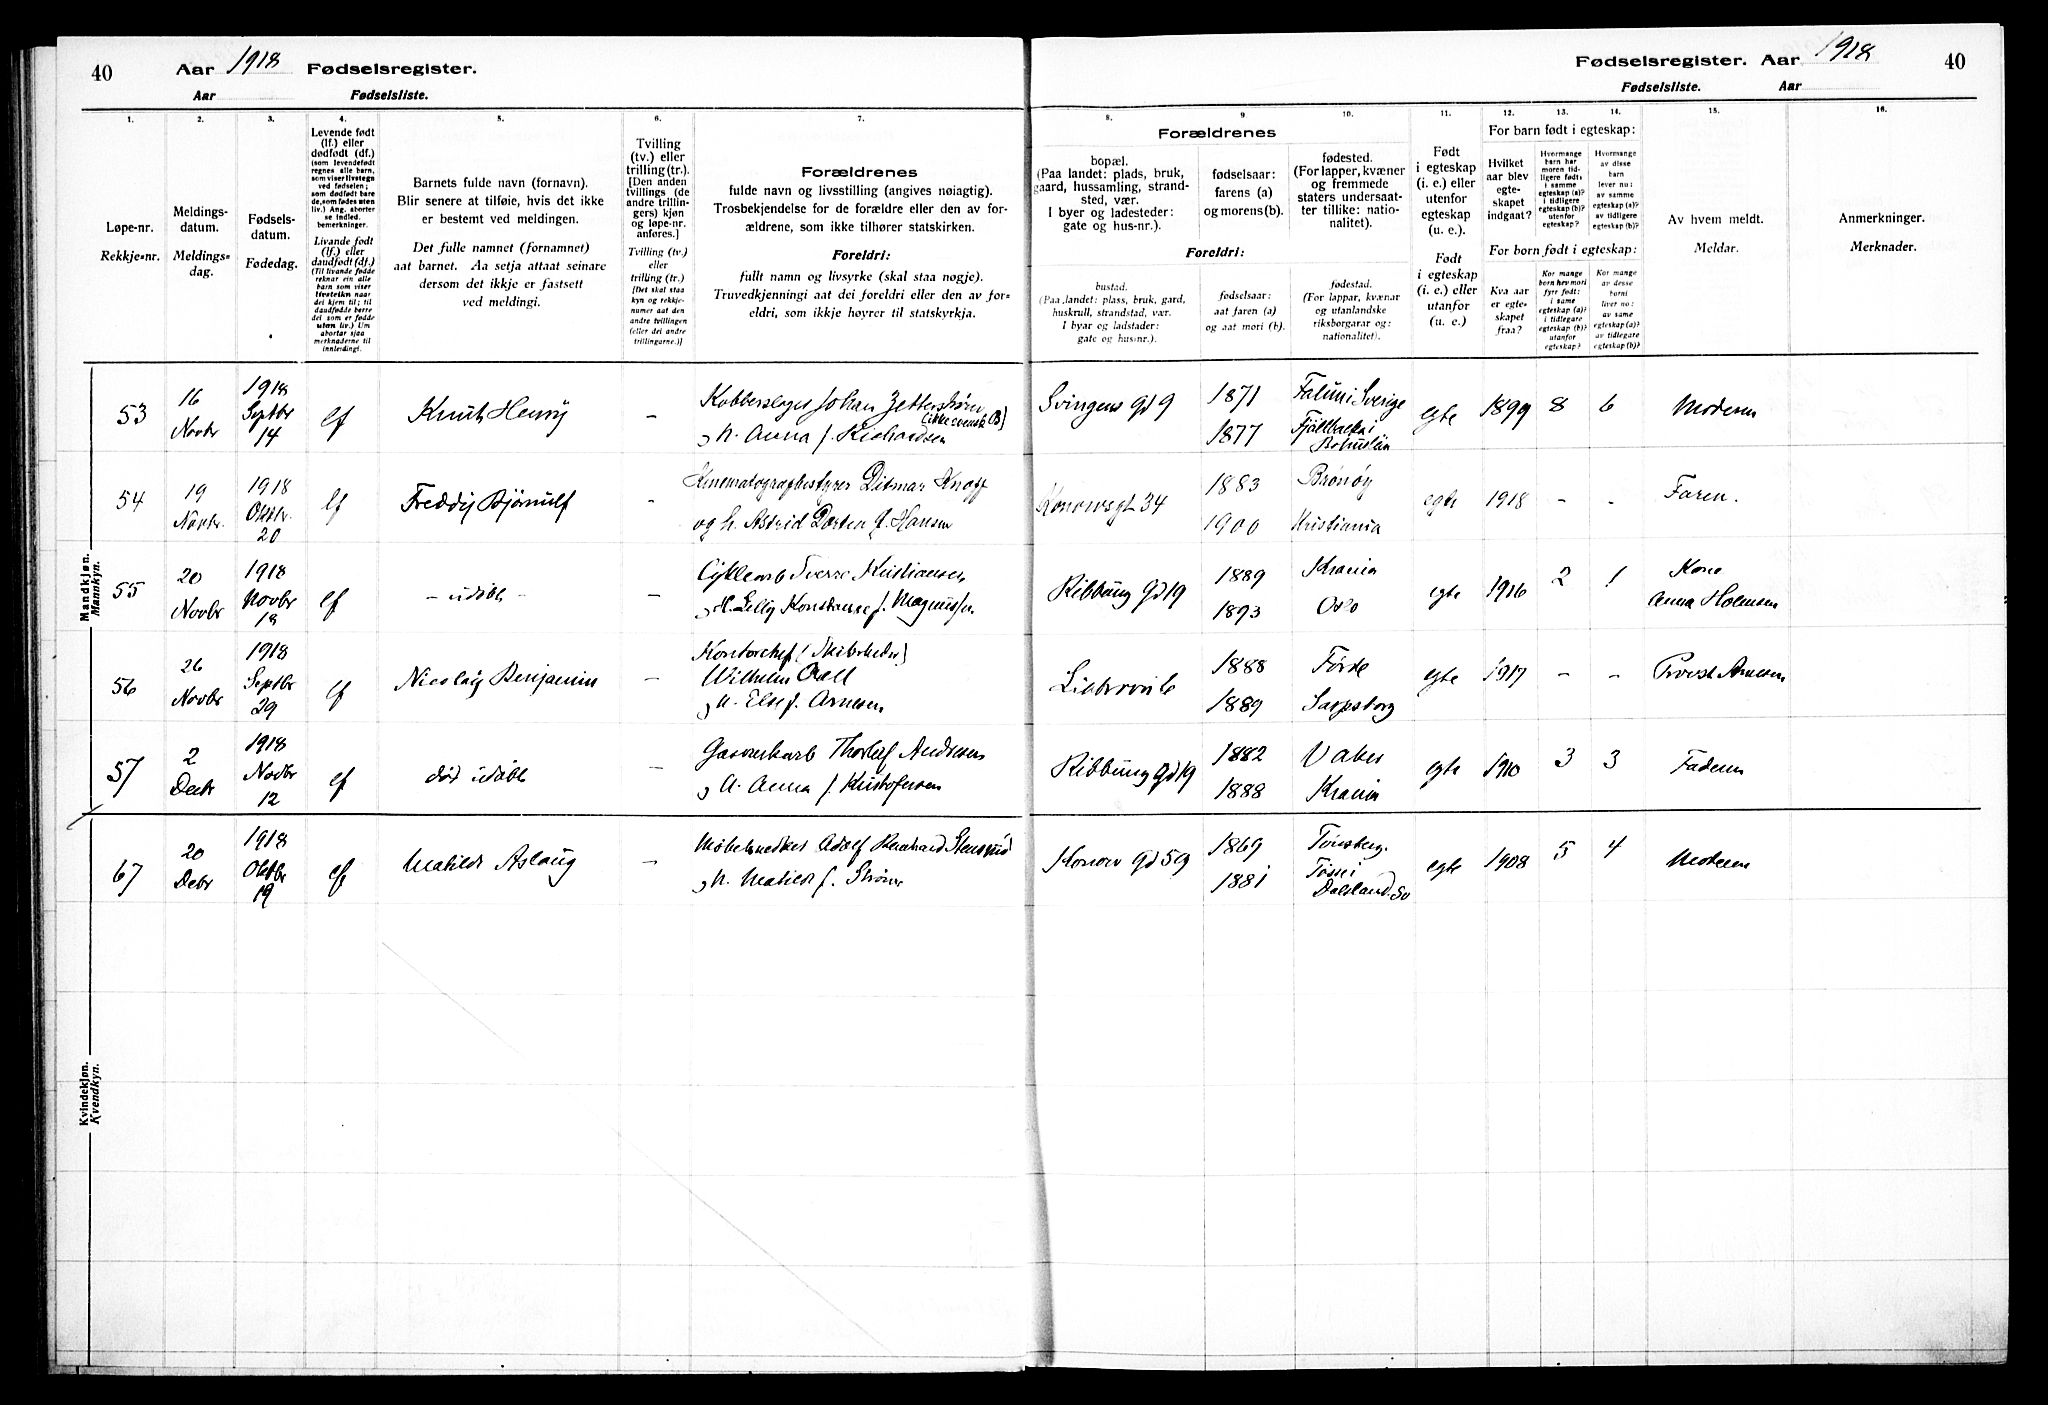 40
Aar 1918 Fødselsregister.
Aar Fødselsliste.
Fødselsregister. Aar 1918
40
Fødselsliste. Aar
1. 2. 3. 4. 5. 6. 7.
Løpe-nr.
Rekkje-nr.
Meldings-
datum.
Meldings-
dag.
Fødsels-
datum.
Fødedag.
Levende født
(lf.) eller
dødfødt (df.)
(som levendefødt
regnes alle barn,
som viser livstegn
ved fødselen;
som dødfødt bare
de, som fødes uten
liv.) Ang. aborter
se indled.
bemerkninger.
Livande født
(lf.) eller
daudfødt (df.)
(Til livande fødde
reknar ein alle
barn som viser
livsteikn naar
dei kjem til; til
daudfødde berre
dei som er fødde
uten liv.) Um
abortar sjaa
merknaderne til
innleidingi.
Barnets fulde navn (fornavn).
Blir senere at tilføie, hvis det ikke
er bestemt ved meldingen.
Det fulle namnet (fornamnet)
aat barnet. Aa setja attaat seinare
dersom det ikkje er fastsett
ved meldingi.
Tvilling
(tv.) eller
trilling (tr.).
[Den anden
tvillings (de
andre trillin-
gers) kjøn
og løpe-nr.
anføres.]
Tvilling (tv.)
eller
trilling (tr.)
[Det skal staa
kyn og rekkje-
numer aat den
andre tvillingen
(eller dei andre
trillingarne.)]
Forældrenes
fulde navn og livsstilling (angives nøiagtig).
Trosbekjendelse for de forældre eller den av for-
ældrene, som ikke tilhører statskirken.
Foreldri:
fullt namn og livsyrke (skal staa nøgje).
Truvedkjenningi aat dei foreldri eller den av for-
eldri, som ikkje høyrer til statskyrkja.
8. 9. 10. 11. 12. 13. 14. 15. 16.
Forældrenes
bopæl.
(Paa landet: plads, bruk,
gaard, hussamling, strand-
sted, vær.
I byer og ladesteder:
gate og hus-nr.).
fødselsaar:
farens (a)
og morens (b).
fødested.
(For lapper, kvæner
og fremmede
staters undersaat-
ter tillike: natio-
nalitet).
Foreldri:
bustad.
(Paa landet: plass, bruk, gard,
huskrull, strandstad, vær.
I byar og ladstader:
gate og hus-nr.).
fødselsaar:
aat faren (a)
og aat mori (b).
fødestad.
(For lappar, kvænar
og utanlandske
riksborgarar og:
nationalitet).
Født
i egteskap
(i. e.) eller
utenfor
egteskap
(u. e.).
Født
i egteskap
(i. e.) eller
utanfor
(u. e.)
For barn født i egteskap:
Hvilket
aar blev
egte-
skapet
indgaat?
Hvormange
barn har
moren tid-
ligere født:
i samme
egteskap (a)?
i tidligere
egteskap (b)?
utenfor
egteskap?
Hvormange
av disse
barn
lever nu:
av samme
egteskap (a)?
av tidligere
egteskap (b)?
For born født i egteskap:
Kva aar
er egte-
skapet
fraa?
Kor mange
born hev mori
fyrr født:
i same
egteskap (a)?
i tidlegare
egteskap (b)?
utanfor
egteskap?
Kor mange
av desse
borni
liver no:
av same
egteskap (a)?
av tidlegare
egteskap (b)?
Av hvem meldt.
Meldar.
Anmerkninger.
Merknader.
Mandkjøn.
Mannkyn.
53 16 Novbr 1918 Septbr 14 lf Knut Henry – Kobberslager Johan Zetterstrøm (ikke svensk B)
h. Anna f. Richardsen
Svingens gd 9 1871 1877 Falun i Sverige Fjällbacka i Bohuslän egte 1899 8 6 Moderen
54 19 Novbr. 1918 Oktbr. 20 lf Freddy Bjørnulf – Kinematografbestyrer Ditmar Knoff
og h. Astrid Dorten f. Hansen
Konowsgt 34 1883 1900 Brønøy Kristiania egte 1918 – – Faren.
55 20 Novbr 1918 Novbr 18 lf – udøbt – – Cyklearb Sverre Kristiansen
h. Elly Konstanse f. Magnussen
Ribbung gd 19 1889 1893 Krania Oslo egte 1916 2 1 Kone Anna Holmsen
56 26 Novbr 1918 Septbr 29 lf Nicolay Benjamin – Kontorchef (Skibsreder)
Wilhelm Vall
h. Else f. Arnesen
1888 1889 Førde Sarpsborg egte 1917 – – Provst Arnesen
57 2 Decbr 1918 Novbr 12 lf død udøbt – Gasverkarb Thorleif Andresen
h. Anna f. Kristofersen
Ribbung gd 19 1882 1888 Vaker Krania egte 1910 3 3 Faderen
Kvindekjøn.
Kvendkyn.
67 20 Debr 1918 Oktbr 19 lf Matilde Aslaug – Møbelsnedker Adolf Bernhard Stensrud
h. Matilde f. Strøm
Konow gd 59 1869 1881 Tønsberg. Tösse i Dalsland. Sv egte 1908 5 4 Moderen